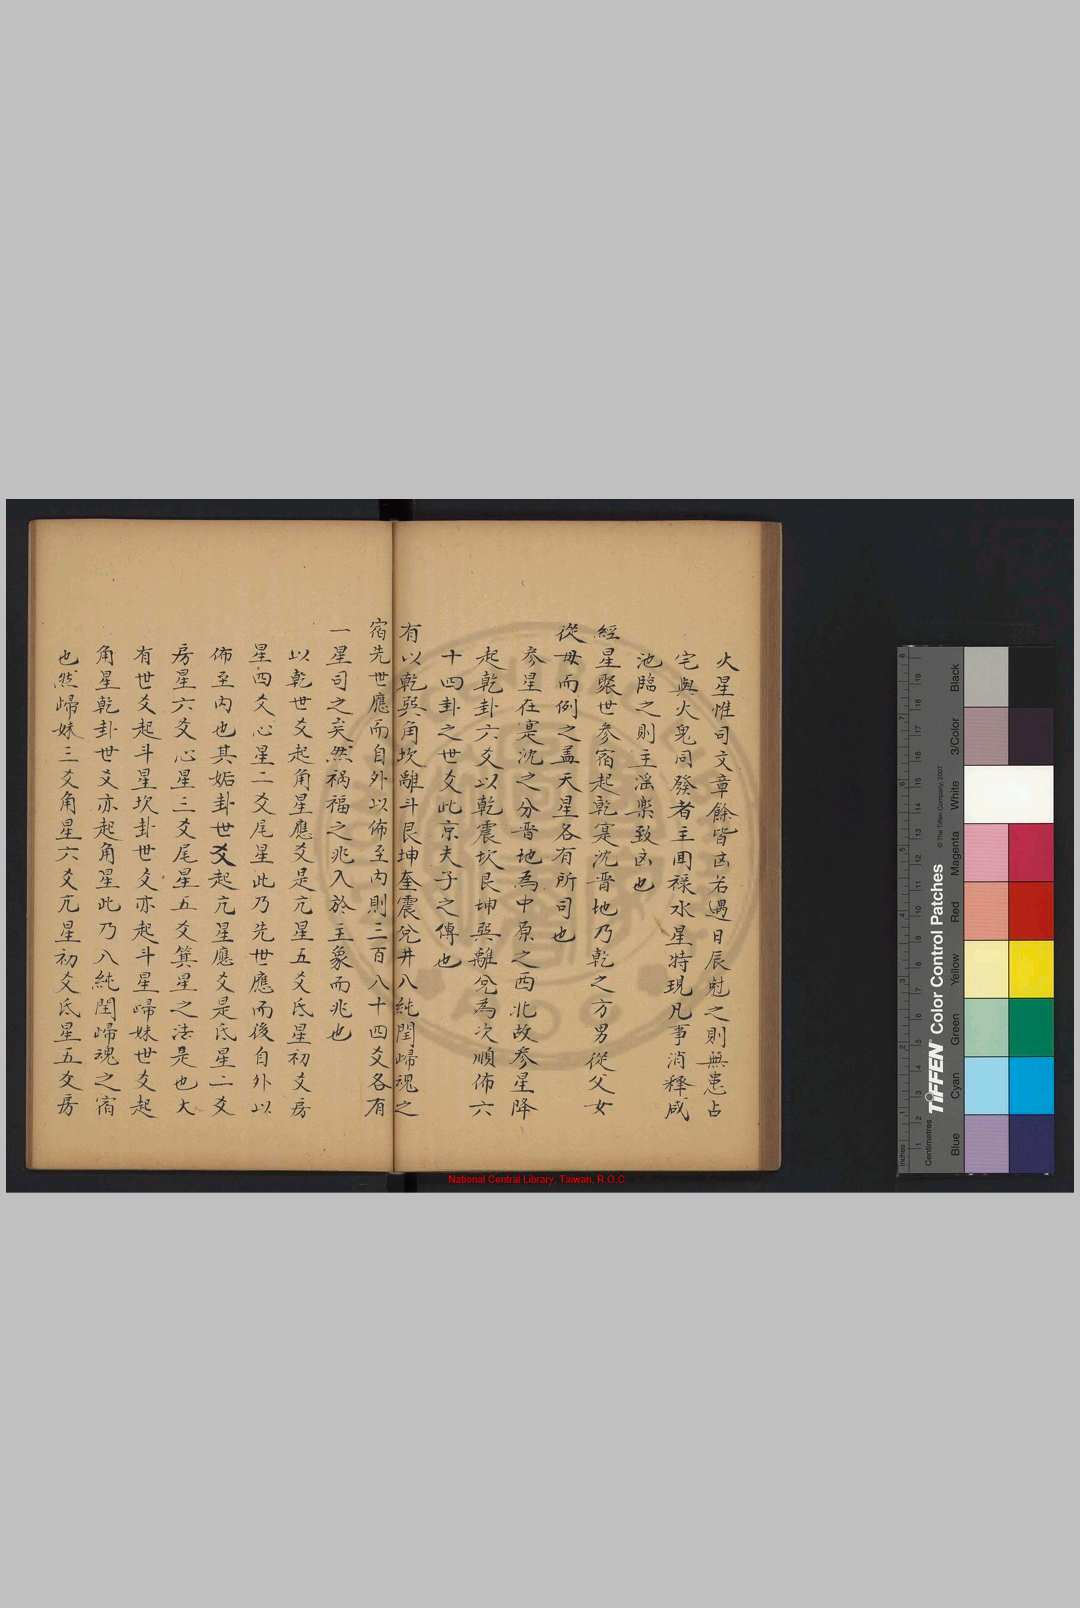 火星惟司文章餘皆凶若遇日辰尅之則無恙占
宅與火鬼同發者主囬祿水星特現凡事消釋咸
池臨之則主淫樂致凶也
經星聚世參宿起乾寔沈晉地乃乾之方男從父女
從母而例之盖天星各有所司也
參星在寔沈之分晉地為中原之西北故參星降
起乾卦六爻以乾震坎艮坤巽離兌為次順佈六
十四卦之世爻此京夫子之傳也
有以乾巽角坎離斗艮坤奎震兌井八純閏歸魂之
宿先世應而自外以佈至內則三百八十四爻各有
一星司之矣然禍福之兆入於主象而兆也
以乾世爻起角星應爻是亢星五爻氐星初爻房
星四爻心星二爻尾星此乃先世應而後自外以
佈至內也其姤卦世爻起亢星應爻是氐星二爻
房星六爻心星三爻尾星五爻箕星之法是也大
有世爻起斗星坎卦世爻亦起斗星歸妹世爻起
角星乾卦世爻亦起角星此乃八純閏歸魂之宿
也然歸妹三爻角星六爻亢星初爻氐星五爻房
National Central Library, Taiwan, R.O.C
Inches
Centimetres
TIFFEN Color Control Patches
© The Tiffen Company, 2007
Blue
Cyan
Green
Yellow
Red
Magenta
White
3/Color
Black